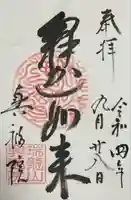 奉拝
令和四年
九月廿八日
釋迦如来
真福院